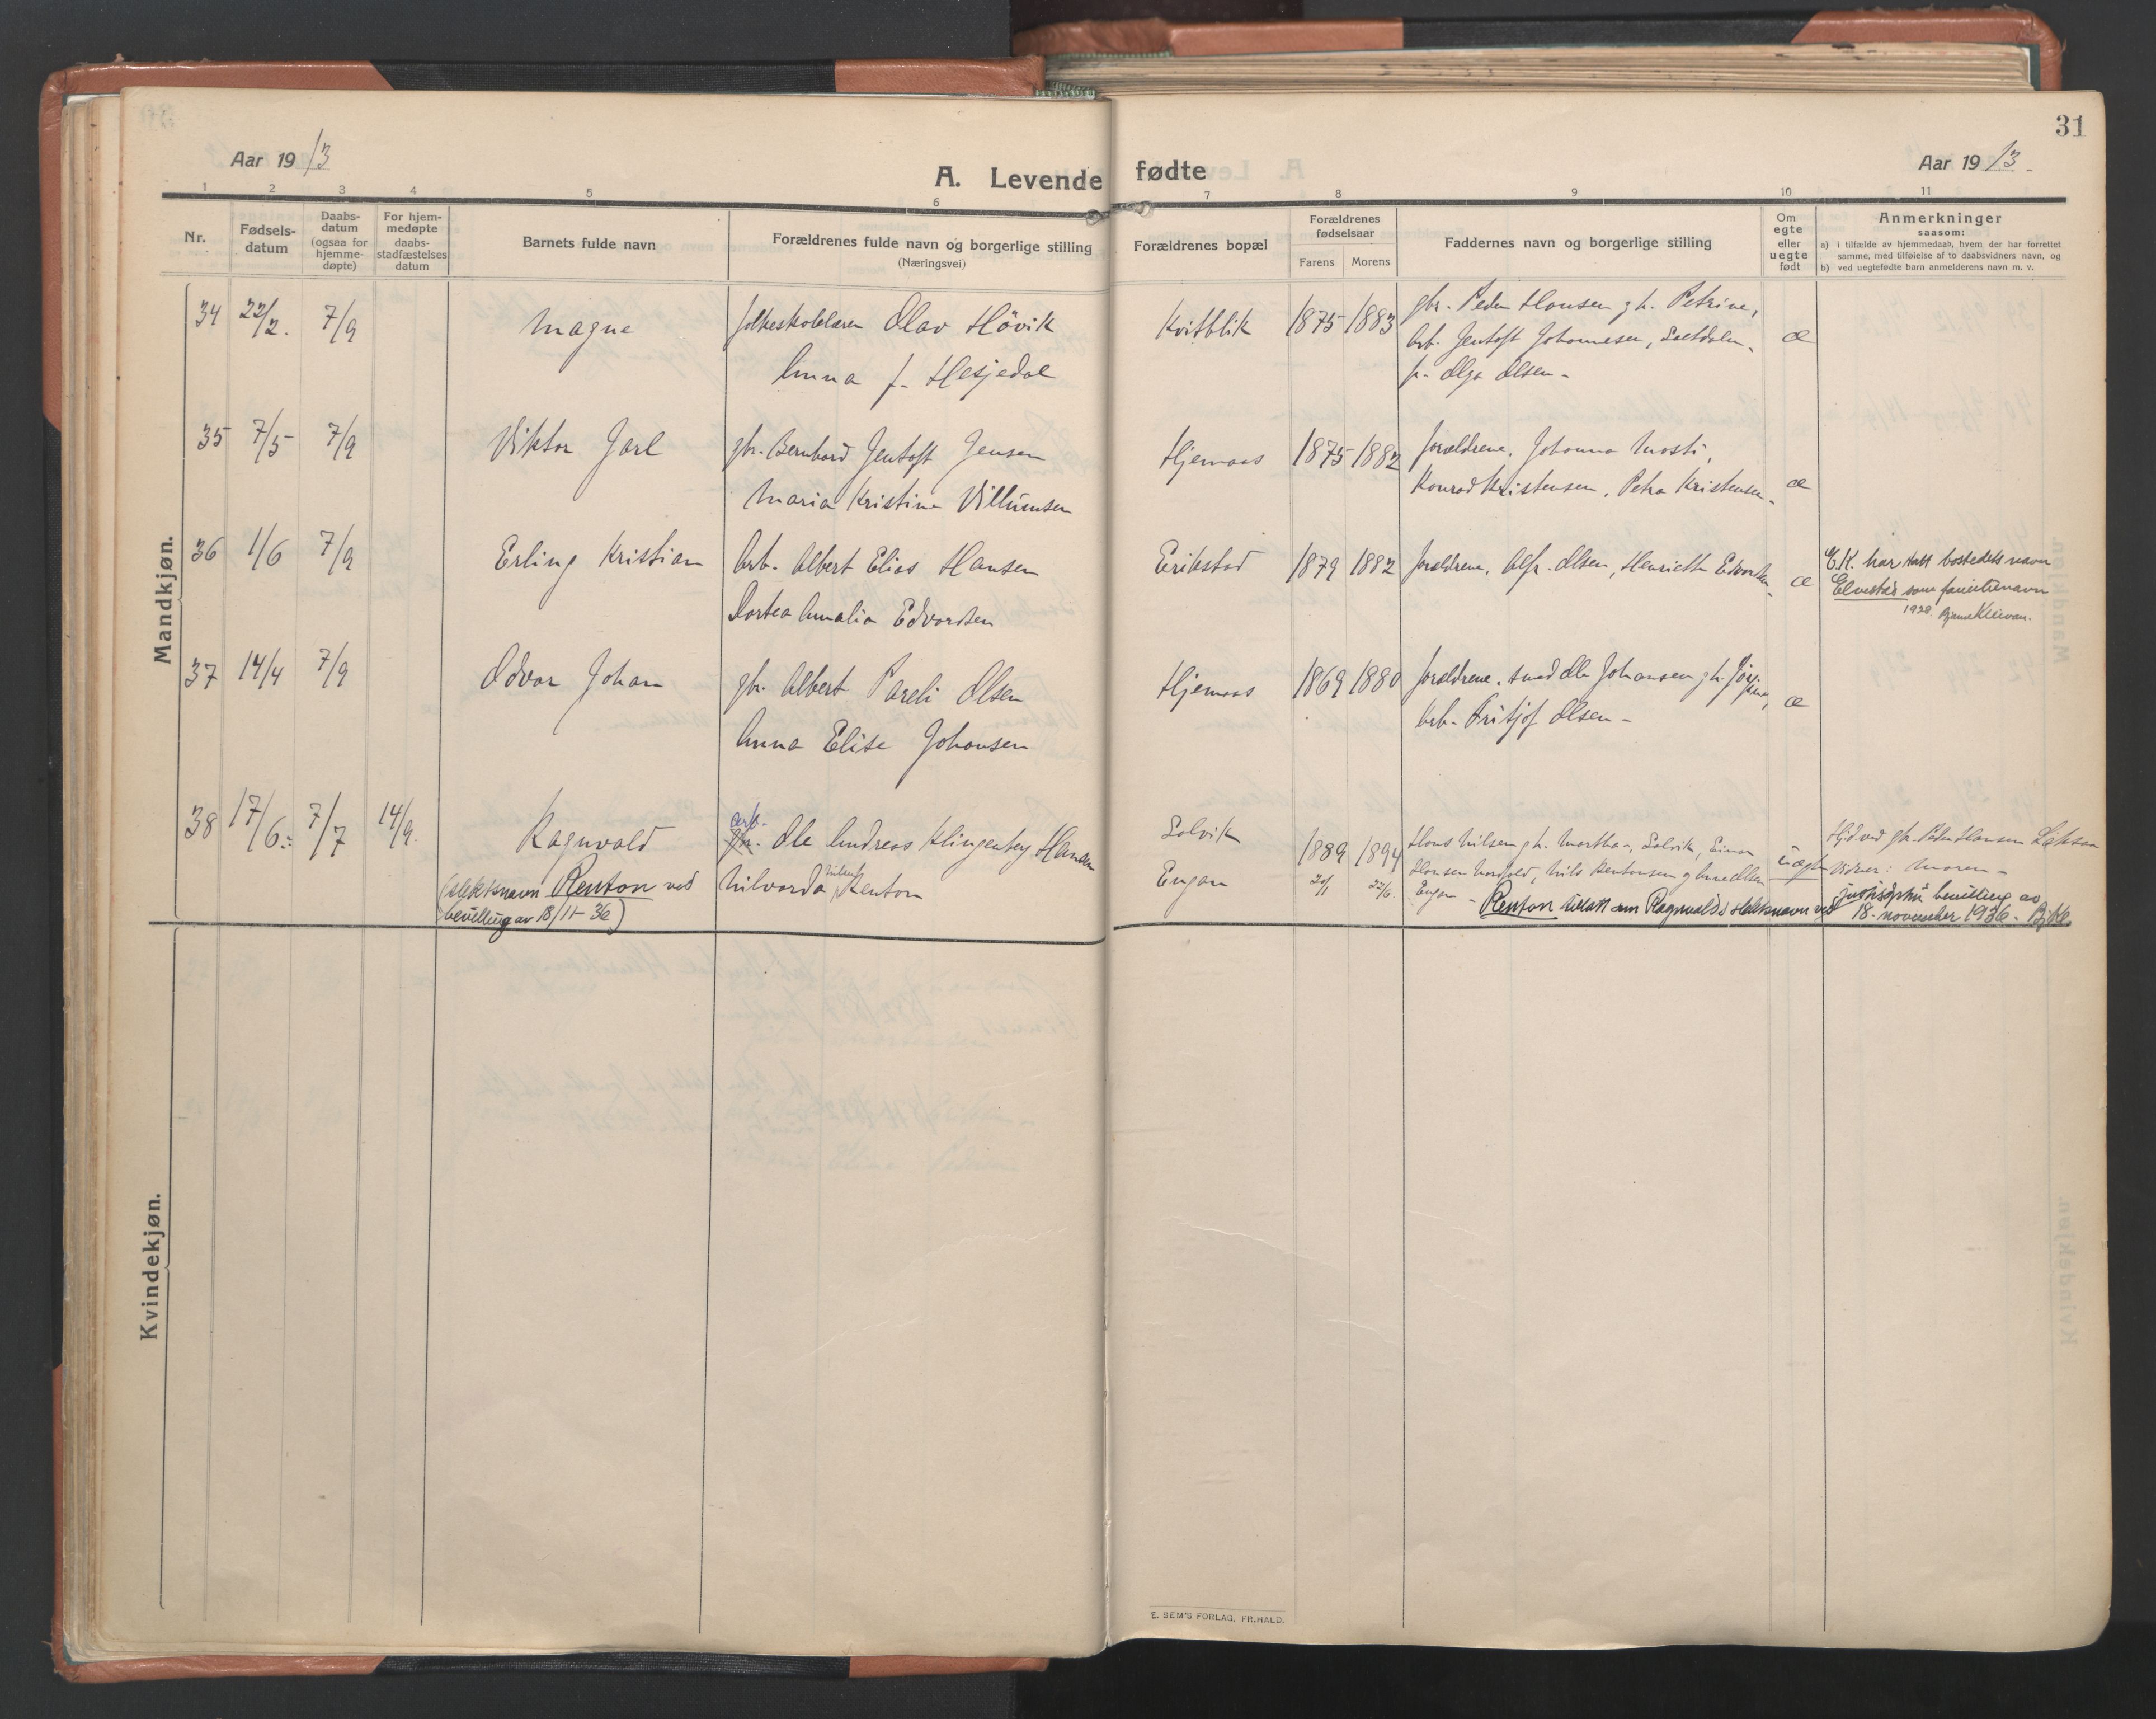 31
Aar 1913
A. Levende fødte
Aar 1913.
1 2 3 4 5 6 7 8 9 10 11
Nr.
Fødsels-
datum
Daabs-
datum
(ogsaa for
hjemme-
døpte)
For hjem-
medøpte
daabs-
stadfæstelses
datum
Barnets fulde navn
Forældrenes fulde navn og borgerlige stilling
(Næringsvei)
Forældrenes bopæl
Forældrenes
fødselsaar
Farens Morens
Faddernes navn og borgerlige stilling
Om
egte
eller
uegte
født
Anmerkninger
saasom:
a) i tilfælde av hjemmedaab, hvem der har forrettet
samme, med tilføielse af to daabsvidners navn, og
b) ved uegtefødte barn anmelderens navn m. v.
Mandkjøn.
34 22/2. 7/9 Magne folkeskolelærer Olav Hövik Kvitblik 1875 1883 gbr. Peder Hansen g h. Petrine,
arb. Jentoft Johannesen, Sætdalen, æ
Anna f. Hesjedal fr. Olga Olsen -
35 7/5 7/9 Viktor Jarl gbr. Bernhard Jentoft Jensen Hjemaas 1875 1882 forældrene, Johanna Mosti,
Maria Kristine Villumsen Konrad Kristensen, Petra Kristensen. æ
36 1/6 7/9 Erling Kristian Arb. Albert Elias Hansen Erikstad 1879 1882 forældrene, Alfr. Olsen, Henriette Edvardsen. æ
Dortea Amalia Edvardsen
E.K. har tatt bostedets navn
Elvestad som familienavn
1928. Bjarne Kleivan.
37 14/4 7/9 Odvar Johan gbr. Albert Pareli Olsen Hjemaas 1869 1880 forældrene, smed Ole Johansen g h. Jørgine, æ
Anna Elise Johansen arb. Fritjof Olsen -
38 17/6. 7/7 14/9. Ragnvald
(slektsnavn Renton ved
bevilling av 18/11-36)
arb.
gbr. Ole Andreas Klingenberg Hansen
Nilvarda Renton
Solvik
Engan
1889 20/1
1894 22/6.
Hans Nilsen g h. Martha, Solvik, Einar
Hansen, Nils Rentonsen g Anne Olsen
Engan -
uægte
Hjd ved gbr. Peder Hansen
vidner: Moren -
Renton tillatt som Ragnvalds slektsnavn ved justisdptni bevilling av
18. november 1936. Bj.Kl.
Kvindekjøn.
E. SEM'S FORLAG, FR.HALD.